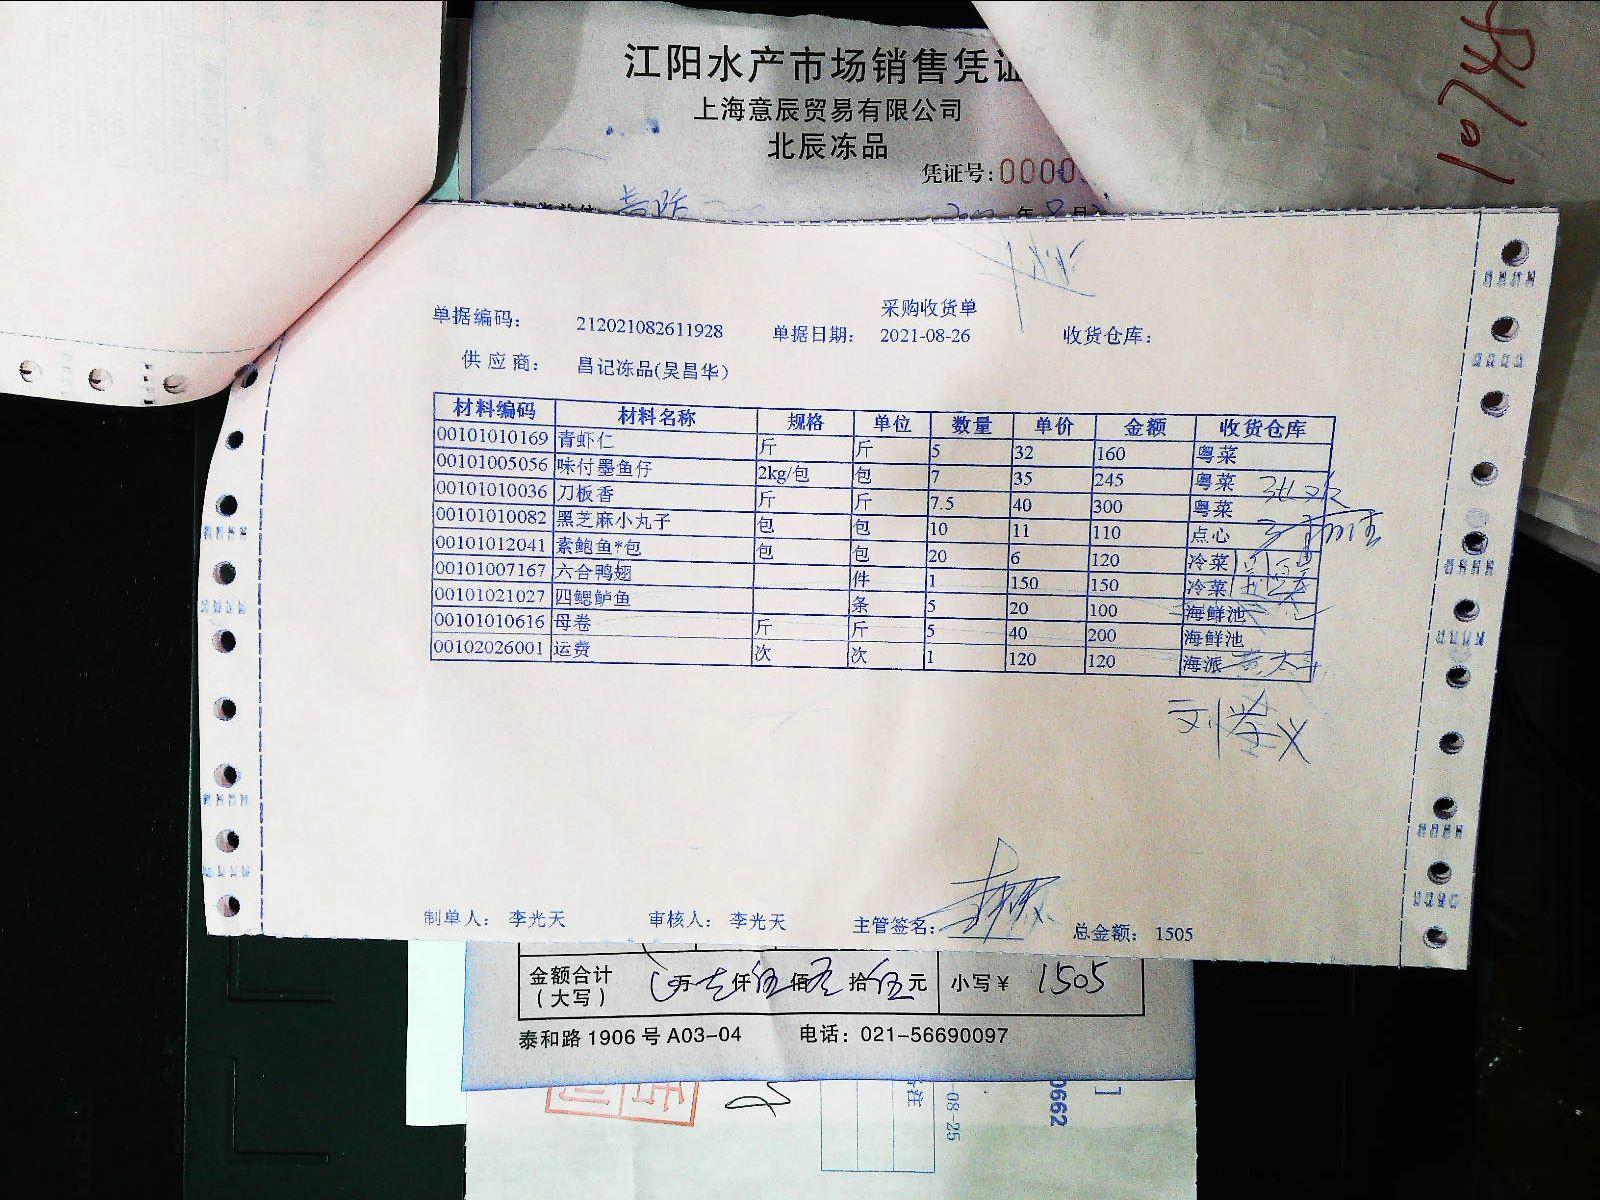 江阳水产市场销售凭证
上海意辰贸易有限公司
北辰冻品
凭证号:0000
年 8 月
采购收货单
单据编码: 212021082611928 单据日期: 2021-08-26 收货仓库:
供应商: 昌记冻品(吴昌华)
材料编码 材料名称 规格 单位 数量 单价 金额 收货仓库
00101010169 青虾仁 斤 斤 5 32 160 粤菜
00101005056 味付墨鱼仔 2kg/包 包 7 35 245 粤菜
00101010036 刀板香 斤 斤 7.5 40 300 粤菜
00101010082 黑芝麻小丸子 包 包 10 11 110 点心
00101012041 素鲍鱼*包 包 包 20 6 120 冷菜
00101007167 六合鸭翅 件 1 150 150 冷菜
00101021027 四鳃鲈鱼 条 5 20 100 海鲜池
00101010616 母卷 斤 斤 5 40 200 海鲜池
00102026001 运费 次 次 1 120 120 海派
刘举义
制单人: 李光天 审核人: 李光天 主管签名: 总金额: 1505
金额合计 万 仟 伍 佰 拾 伍 元 小写¥ 1505
(大写)
泰和路1906号A03-04 电话: 021-56690097
-08-25
0662